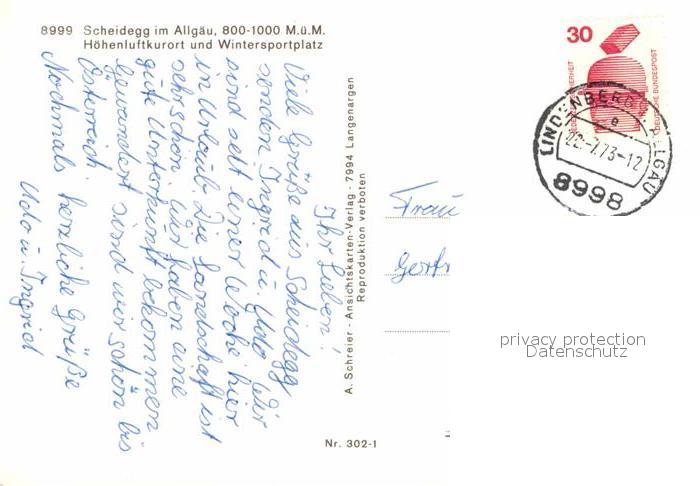 8999 Scheidegg im Allgäu, 800-1000 M.ü.M.
Höhenluftkurort und Wintersportplatz
Ihr Lieben!
Viele Grüße aus Scheidegg
senden Ingrid u. Udo. Wir
sind seit einer Woche hier
in Urlaub. Die Landschaft ist
sehr schön. Wir haben eine
gute Unterkunft bekommen
Gewandert sind wir schon bis
Österreich.
Nochmals herzliche Grüße
Udo u. Ingrid
A. Schreier - Ansichtskarten-Verlag - 7994 Langenargen
Reproduktion verboten
Nr. 302-1
30
DEUTSCHE BUNDESPOST
LINDENBERG ALLGÄU
e
22.-7.73-12
8998
Frau
Gertr
privacy protection
Datenschutz